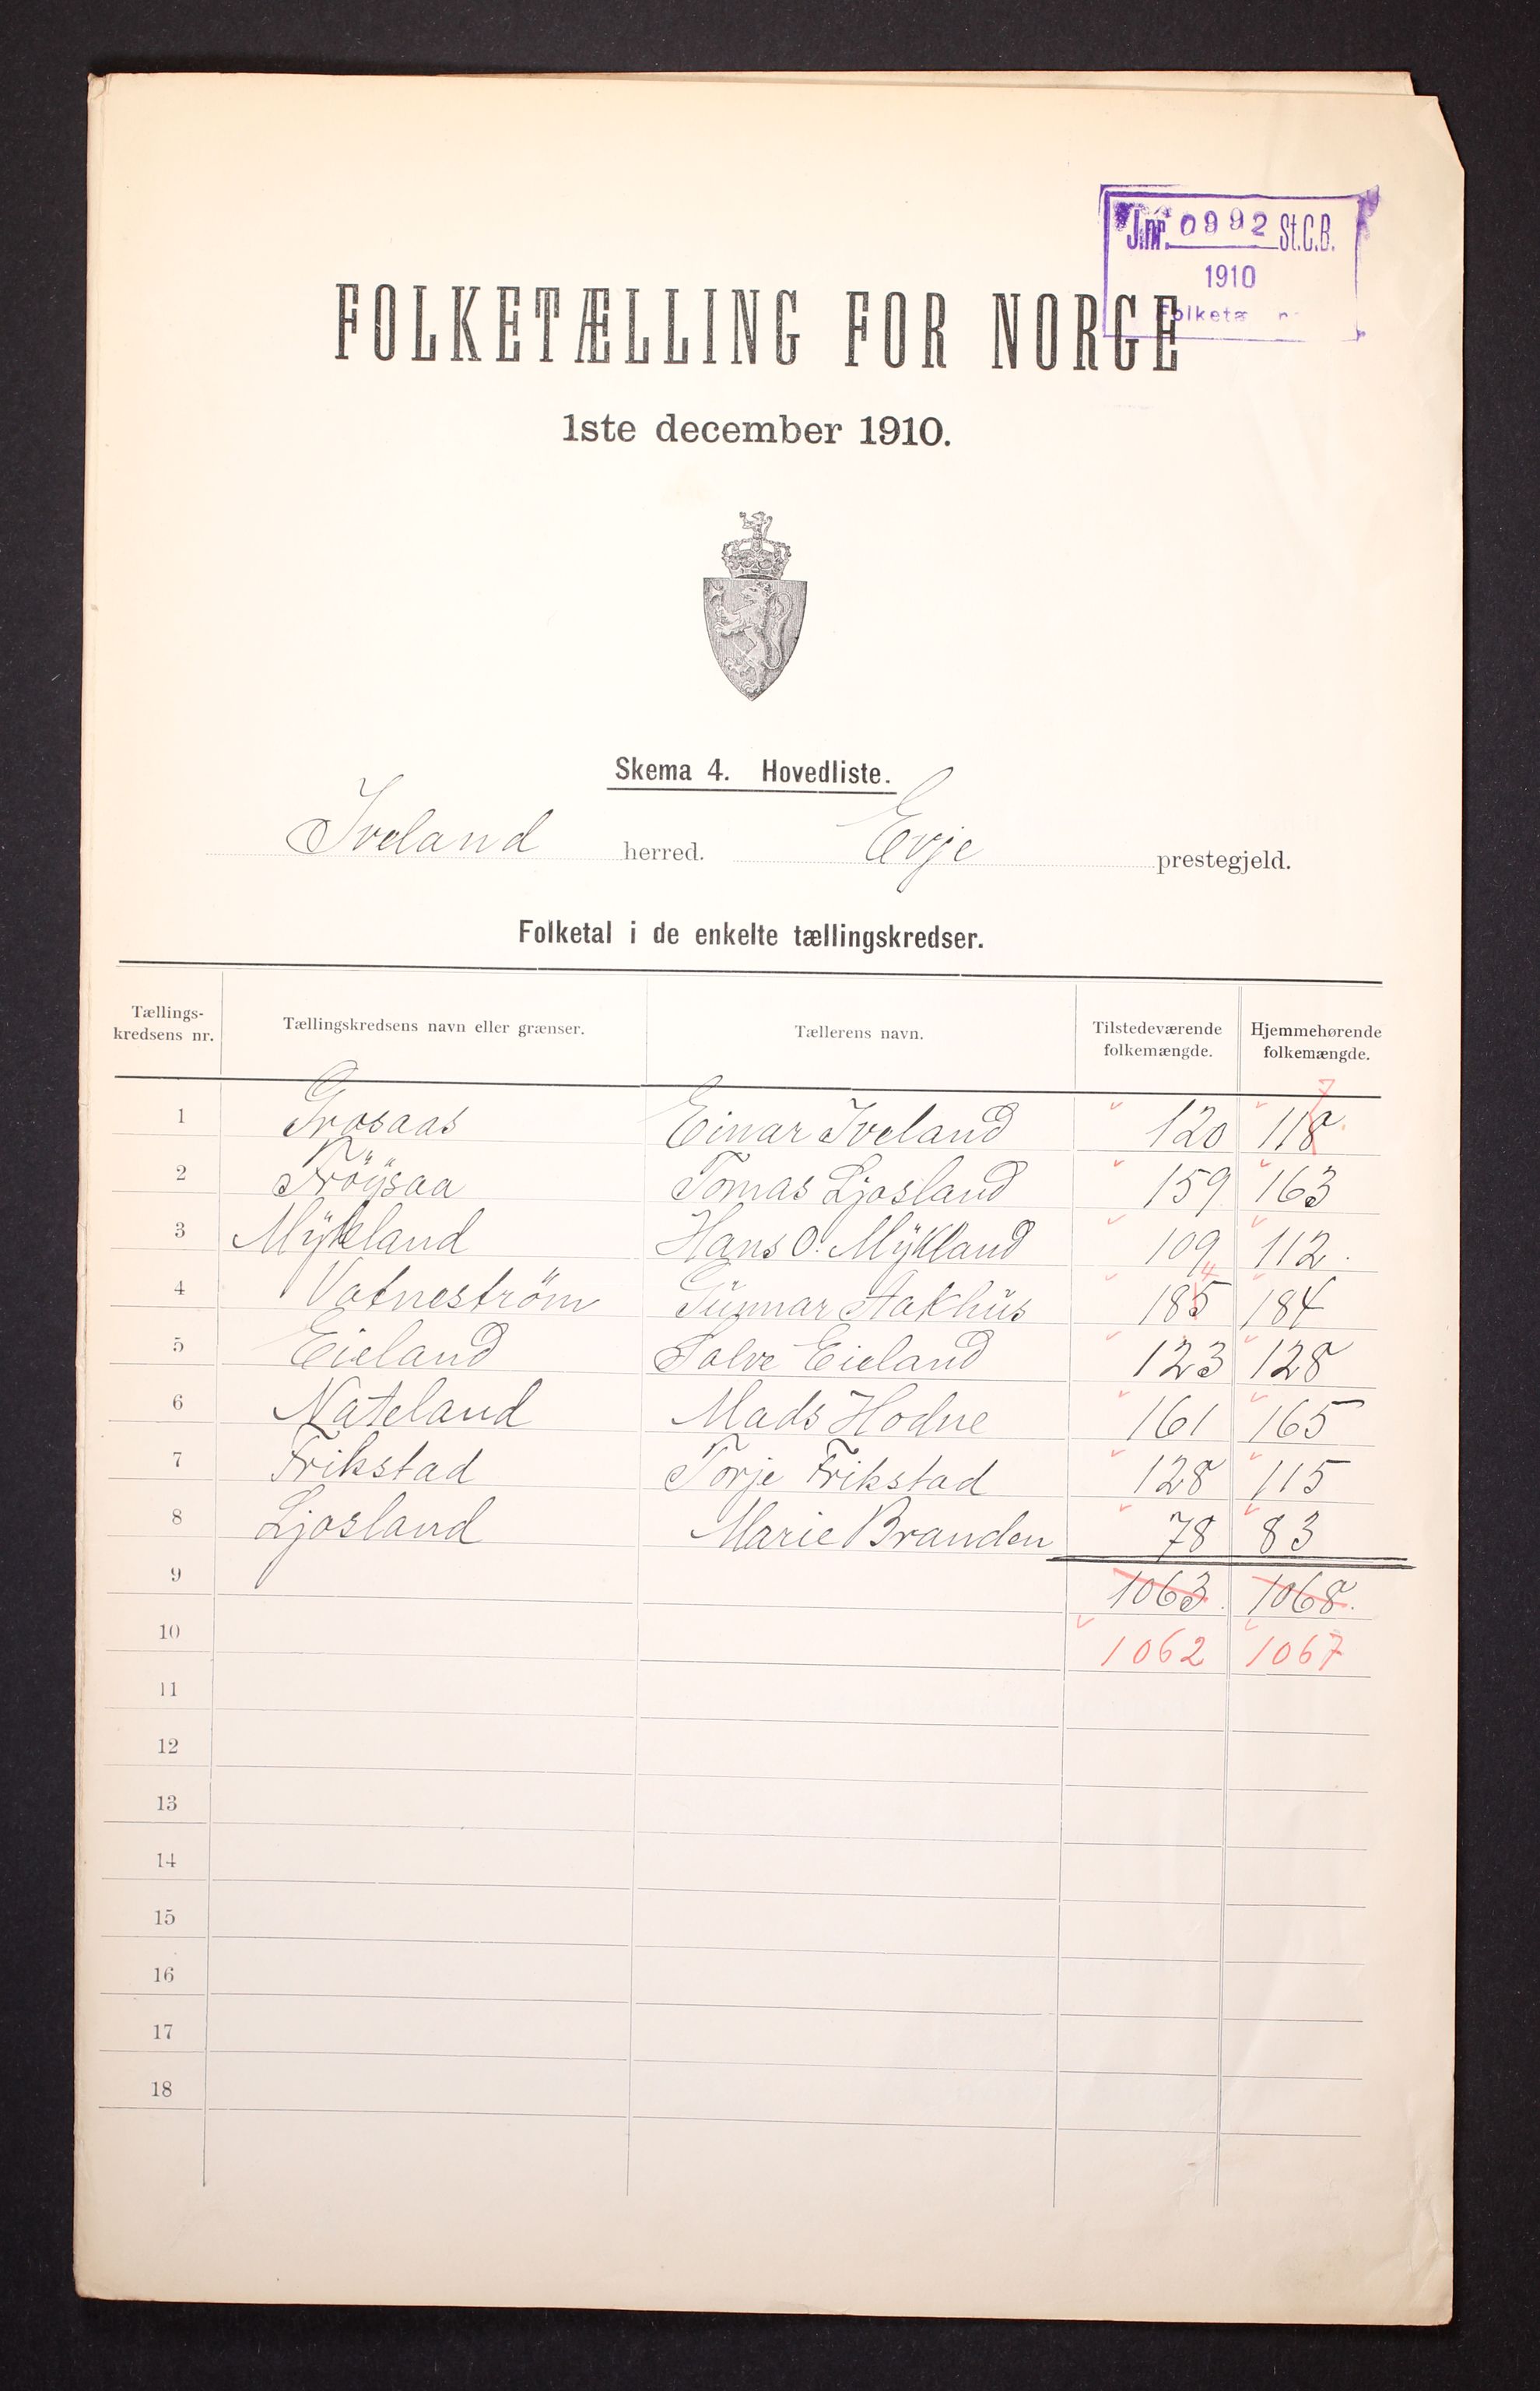 J.nr. 0992 St.C.B.
1910
FOLKETÆLLING FOR NORGE
1ste december 1910.
Skema 4. Hovedliste.
Iveland herred. Evje prestegjeld.
Folketal i de enkelte tællingskredser.
Tællings-kredsens nr. Tællingskredsens navn eller grænser. Tællerens navn. Tilstedeværende folkemængde. Hjemmehørende folkemængde.
7
1 Grosaas Einar Iveland 120 118
2 Tröÿsaa Tomas Ljosland 159 163
3 Mÿkland Hans O. Mÿkland 109 112
4
4 Vatneström Gunnar Aakhus 185 184
5 Eieland Salve Eieland 123 128
6 Nateland Mads Hodne 161 165
7 Frikstad Torje Frikstad 128 115
8 Ljosland Marie Branden 78 83
9 1063 1068
10 1062 1067
11
12
13
14
15
16
17
18